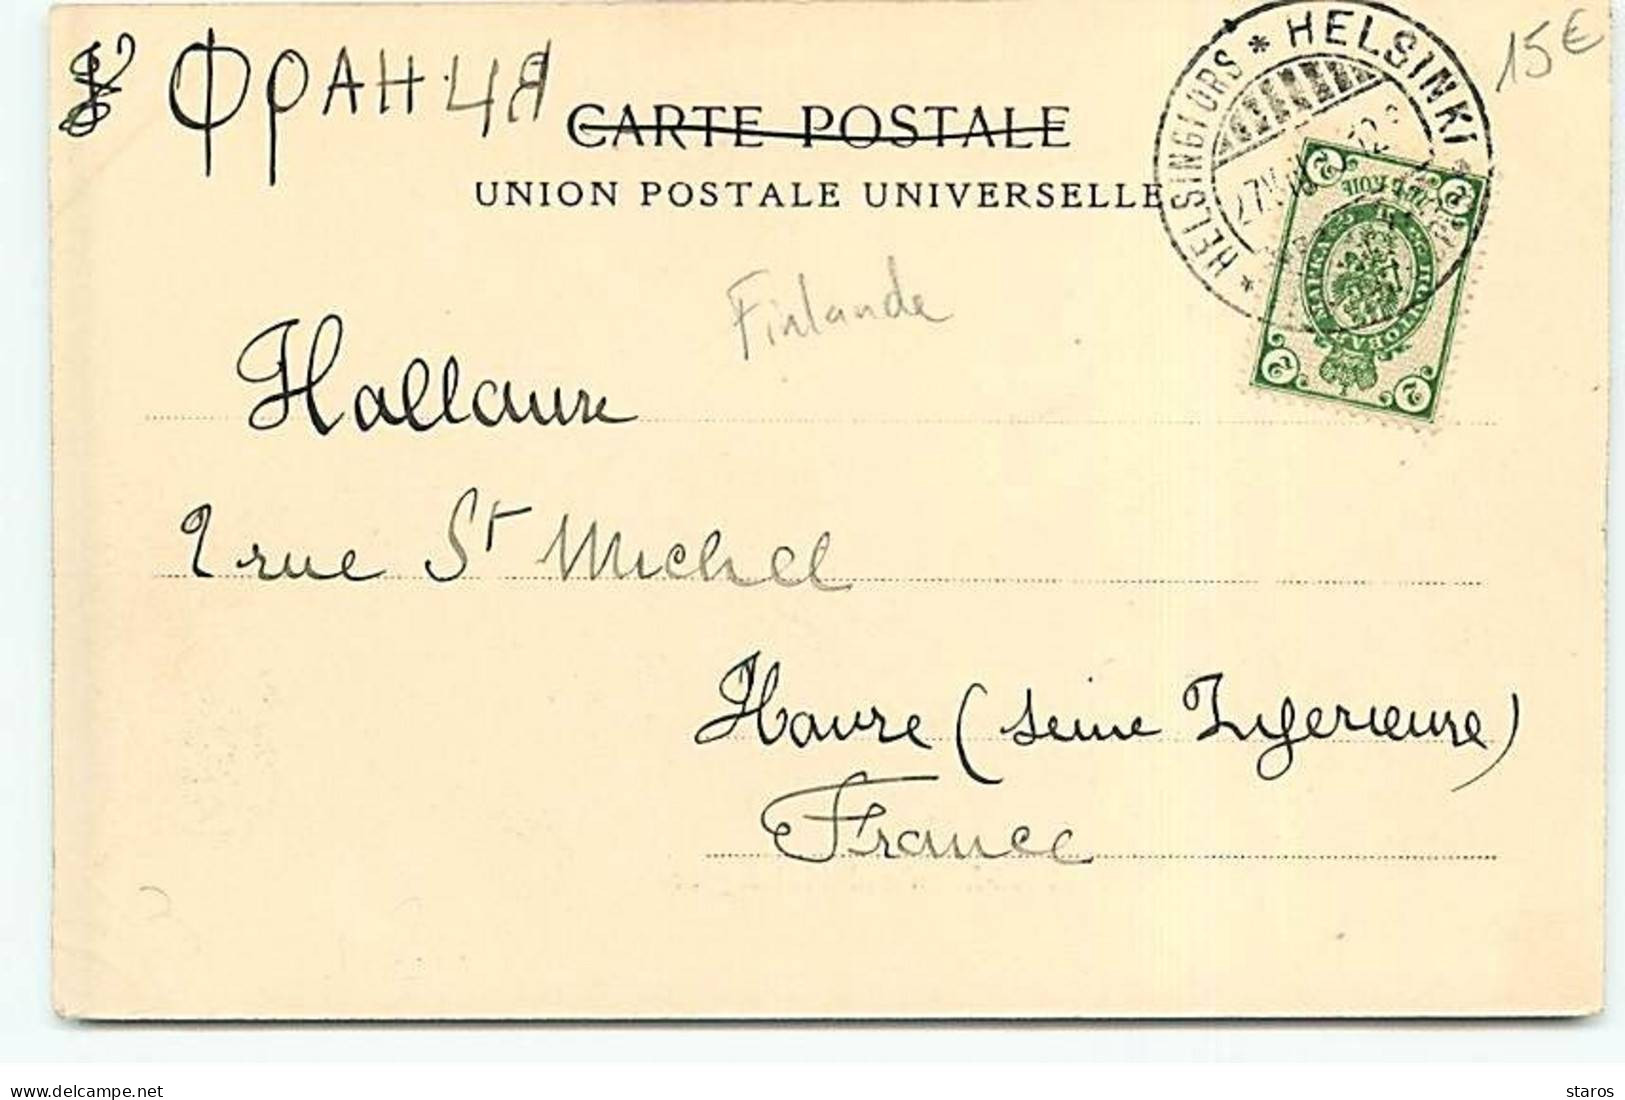 ФРАНЦІЯ
15€
CARTE POSTALE
UNION POSTALE UNIVERSELLE
* HELSINGFORS * HELSINKI *
2
2
2
2
Finlande
Hallaure
2 rue St Michel
Havre (Seine Inferieure)
France
www.delcampe.net
staros